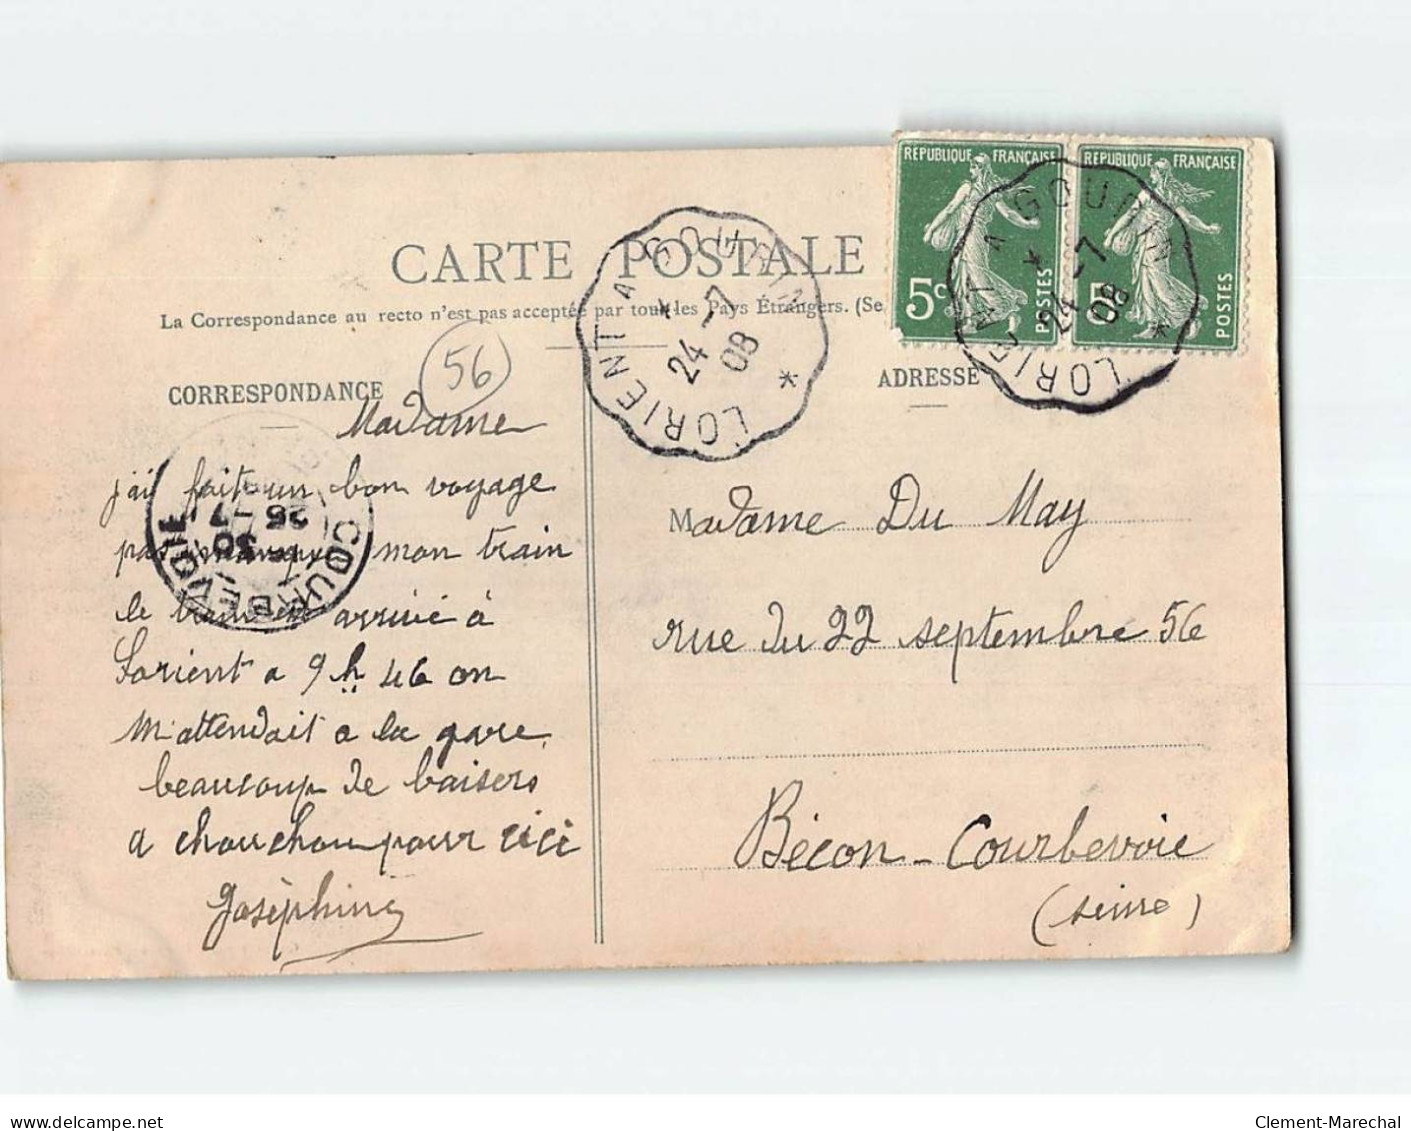 REPUBLIQUE FRANÇAISE
5c
POSTES
REPUBLIQUE FRANÇAISE
5
POSTES
LORIENT A GOURIN
24 -7
08
LORIENT A GOURIN
24 -7
08
CARTE POSTALE
La Correspondance au recto n'est pas acceptée par tous les Pays Étrangers. (Se
CORRESPONDANCE
56
ADRESSE
Madame
j'ai fait un bon voyage
pas manqué mon train
le train est arrivé à
Lorient a 9h 46 on
m'attendait a la gare
beaucoup de baisers
a chouchou pour cici
Joséphine
COURBEVOIE
30
26 -7
Madame Du May
rue du 22 septembre 56
Bécon - Courbevoie
(seine)
delcampe.net
Clement-Marechal